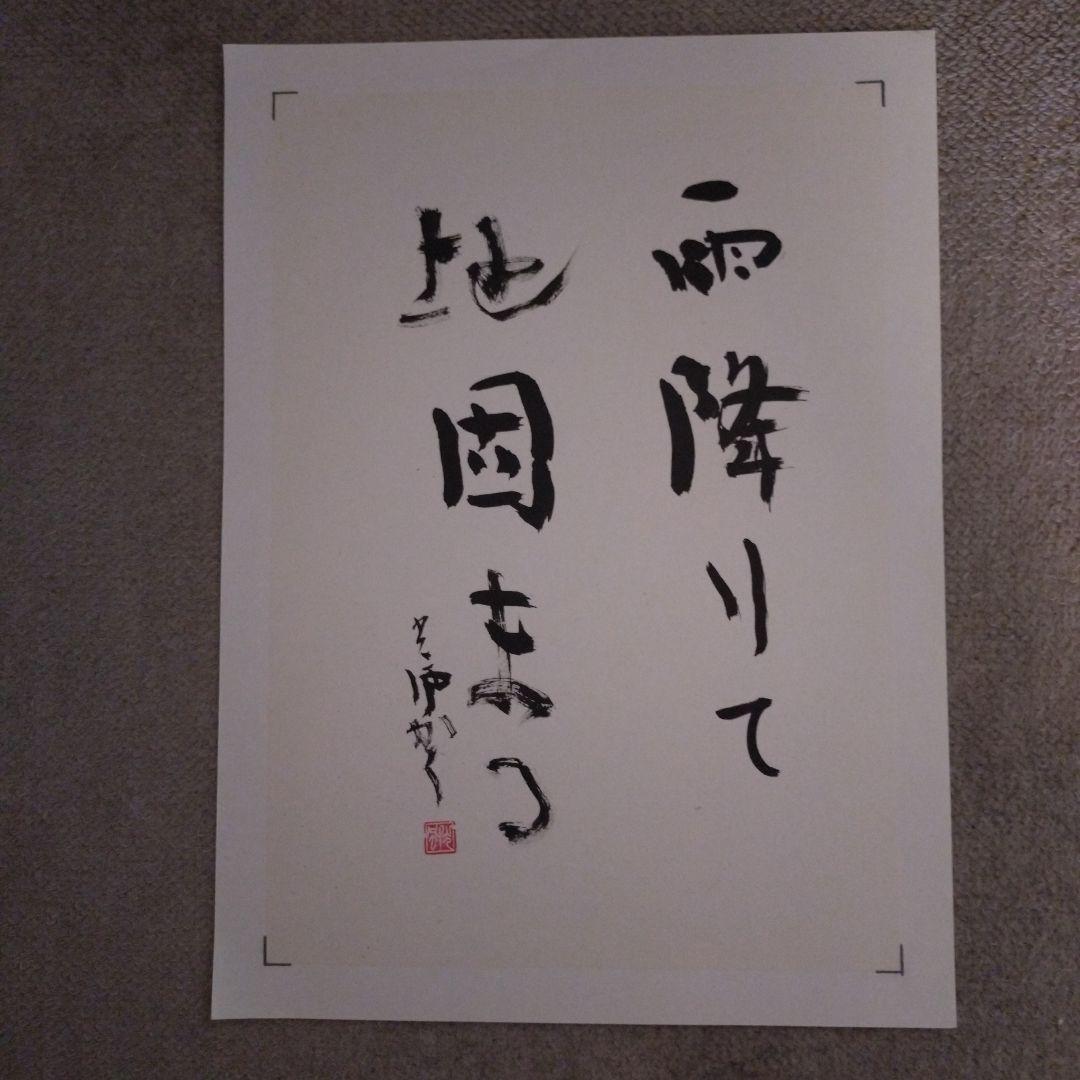 雨降りて
地固まる